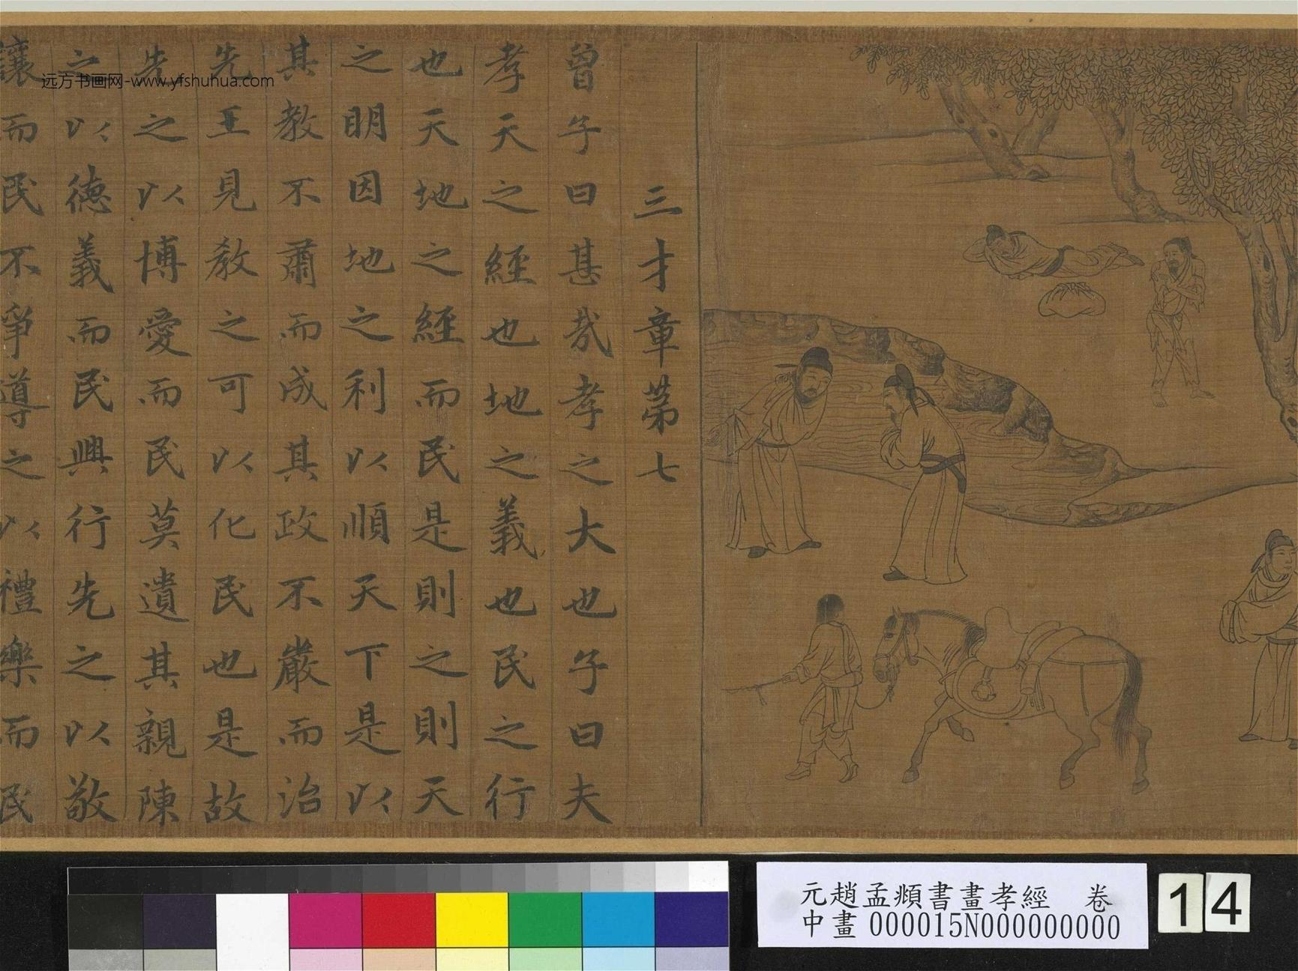 三才章苐七
曾子曰甚哉孝之大也子曰夫
孝天之經也地之義也民之行
也天地之經而民是則之則天
之明因地之利以順天下是以
其教不肅而成其政不嚴而治
先王見教之可以化民也是故
先之以博愛而民莫遺其親陳
之以德義而民興行先之以敬
讓而民不爭導之以禮樂而民
远方书画网-www.yfshuhua.com
元趙孟頫書畫孝經 卷
中畫000015N000000000
14